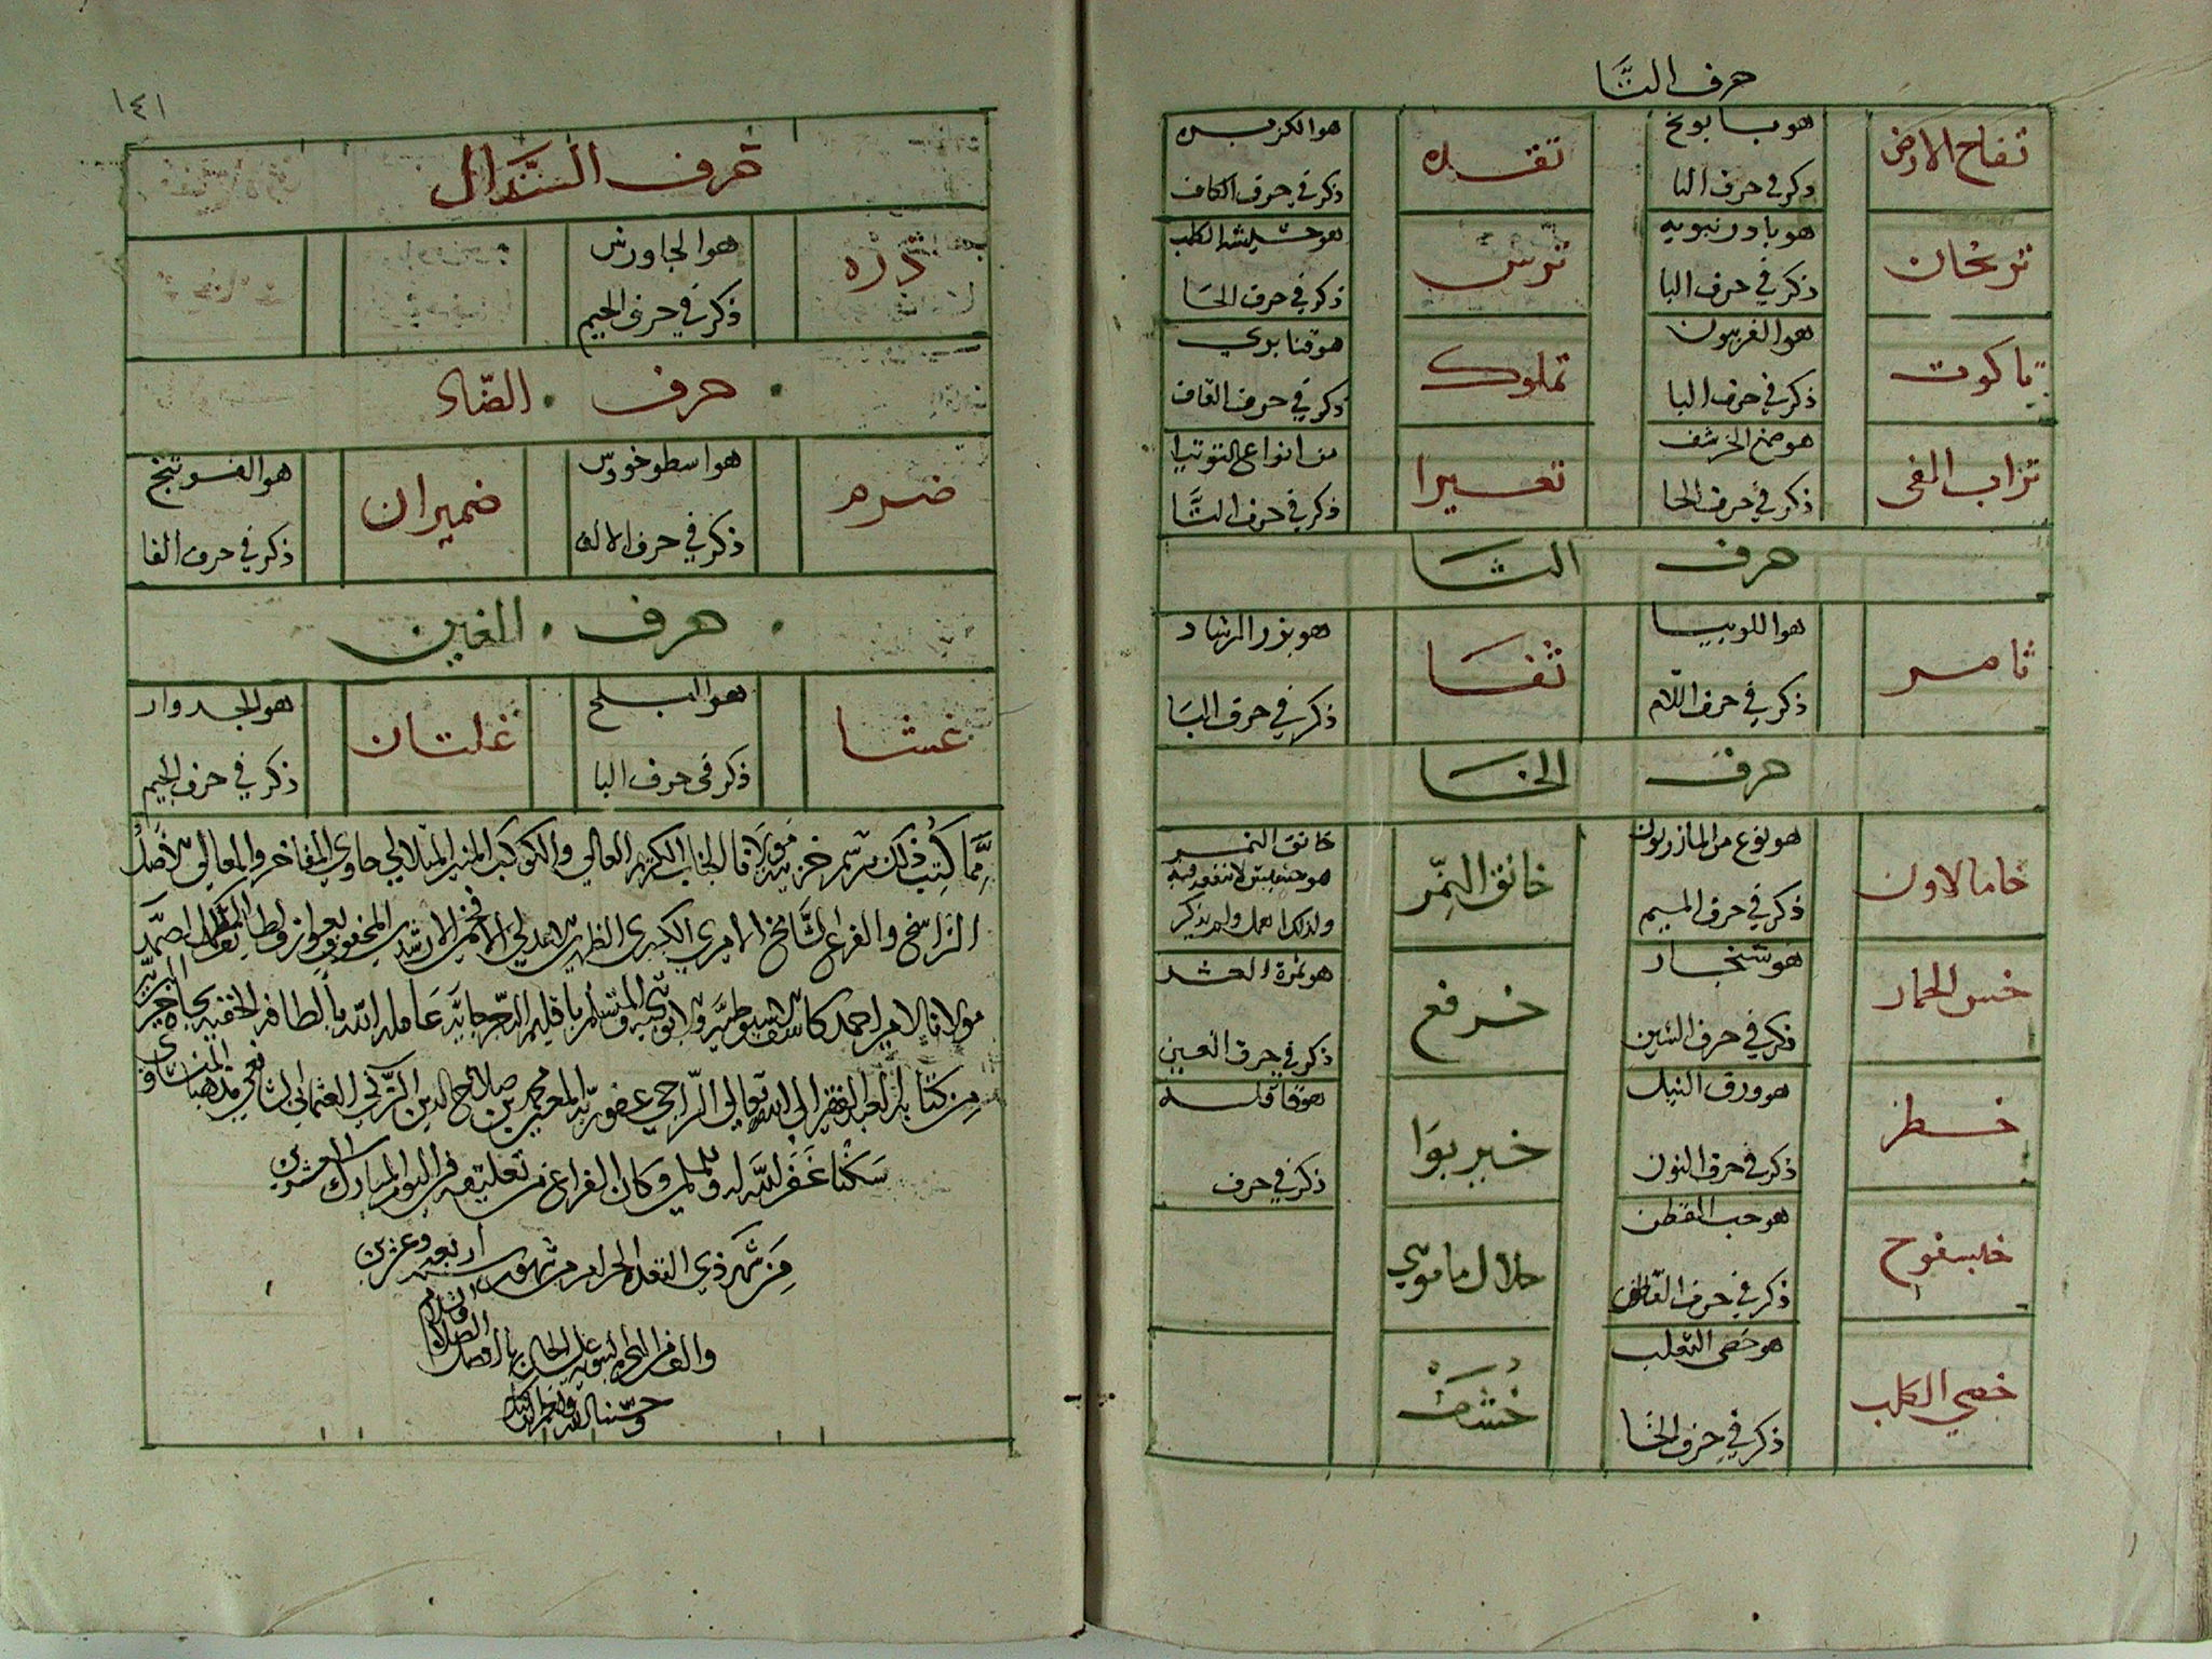 حرف التا
تفاح الارض
هو بابونج
ذكر في حرف البا
تقده
هو الكزبره
ذكر في حرف الكاف
ترنجان
هو بادرنبويه
ذكر في حرف البا
ترس
هو حشيشة الكلب
ذكر في حرف الحا
تاكوت
هو الفربيون
ذكر في حرف البا
تملوك
هو قنابري
ذكر في حرف القاف
تراب القي
هو صمغ الخرشف
ذكر في حرف الحا
تعسيرا
من انواع التوتيا
ذكر في حرف التا
حرف الثا
ثامر
هو اللوبيا
ذكر في حرف اللام
ثفا
هو بزر الرشاد
ذكر في حرف البا
حرف الخا
خامالاون
هو نوع من المازريون
ذكر في حرف الميم
خانق النمر
خانق النمر
هو حشيش لا
ولذلك
خس الحمار
هو شنجار
ذكر في حرف الشين
خرفع
هو ثمرة العشر
ذكر في حرف العين
خطر
هو ورق النيل
ذكر في حرف النون
خيربوا
هو قاقله
ذكر في حرف
خيسفوج
هو حب القطن
ذكر في حرف القاف
خلال مامون
خصي الكلب
هو خصى الثعلب
ذكر في حرف الخا
١٤١
حرف الذال
ذره
هو الجاورس
ذكر في حرف الجيم
حرف الضاد
ضرم
هو اسطوخودس
ذكر في حرف الالف
ضميران
هو الفوتنج
ذكر في حرف الفا
حرف الغين
غشا
هو البلح
ذكر في حرف البا
غلتان
هو الجدوار
ذكر في حرف الجيم
مما كتب ذلك برسم خزينة مولانا الجناب الكريم العالي والكوكب المنير المتلالي حاوي المفاخر والمعالي الاصل
الراسخ والفرع الشامخ الاميري الكبيري
مولانا الامير احمد كاشف اسيوطية
من كتابة العبد الفقير الى الله تعالى الراجي عفو ربه المعين محمد بن صلاح الدين العثماني الشافعي مذهبا
سكنا غفر الله له وللمسلمين وكان الفراغ من تعليقه في اليوم المبارك العشرين
من شهر ذي القعدة الحرام من شهور سنه اربعه وعشرين
والف من الهجرة النبوية على صاحبها افضل الصلاة والسلام
وحسبنا الله ونعم الوكيل